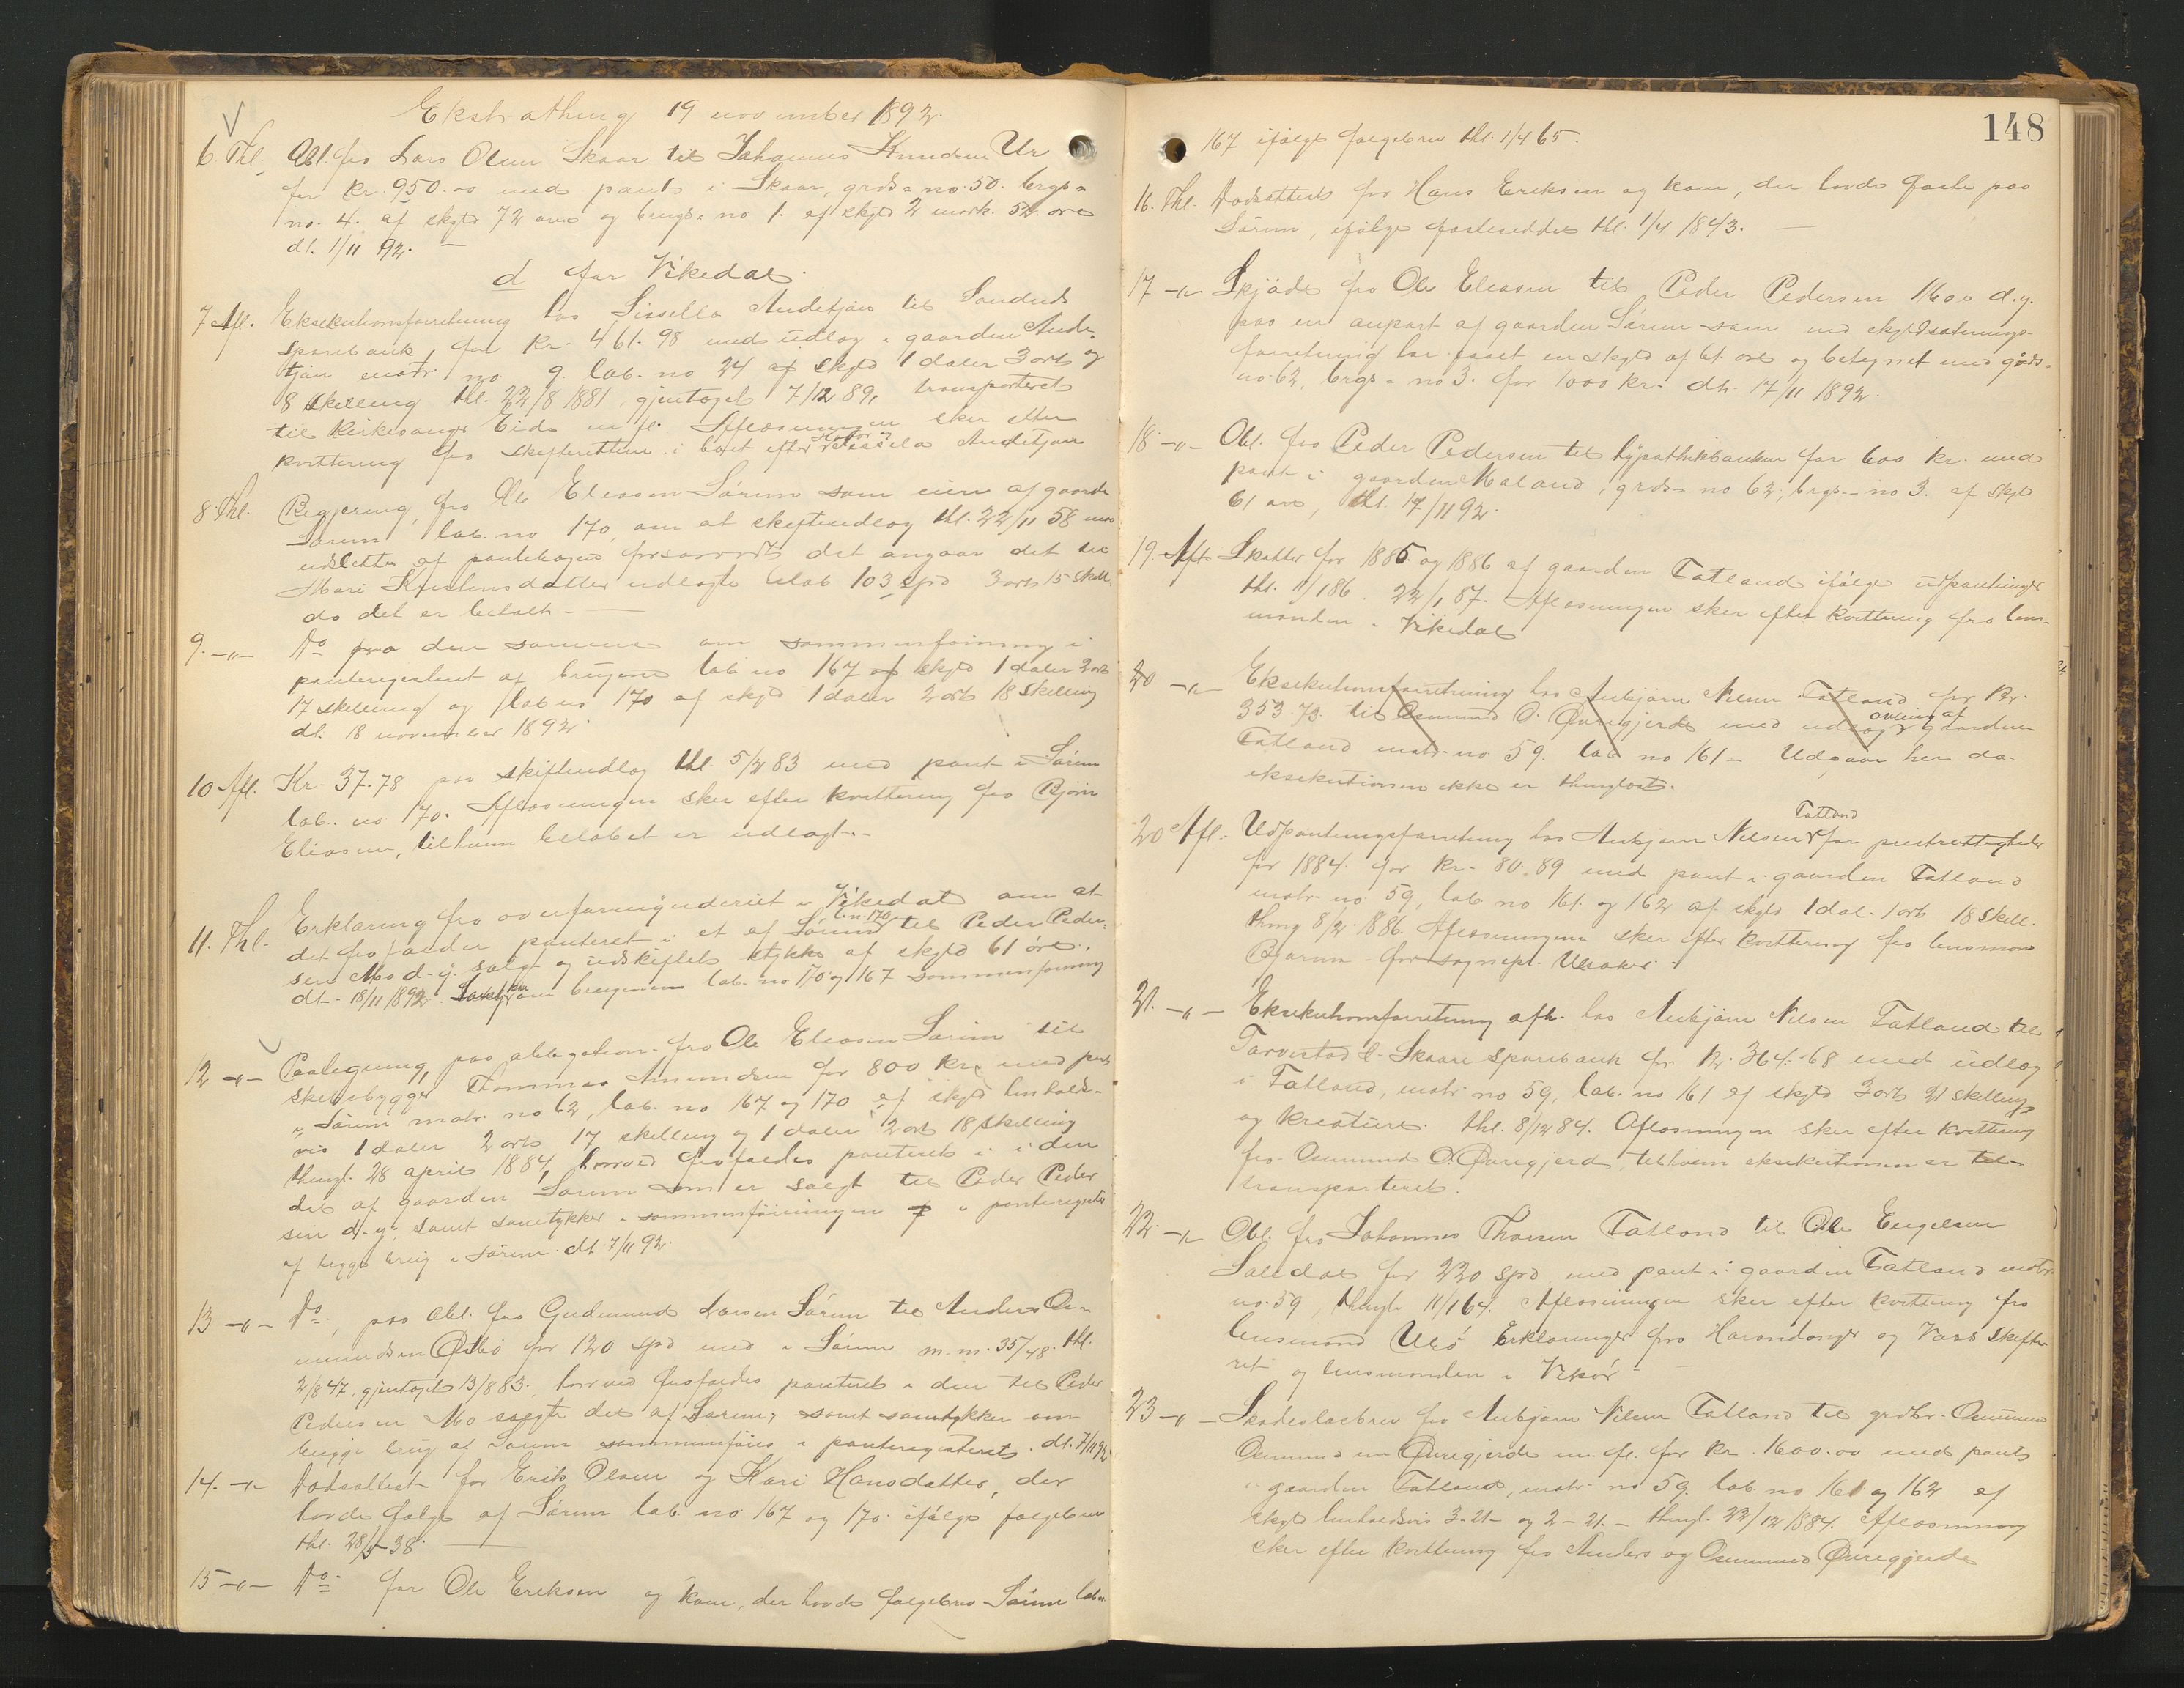 Ekstrathing 19 november 1892.
6. Thl. Obl. fra Lars Olsen Skaar til Johannes Knudsen Ur
for kr. 950.00 med pant i Skaar, grds. no. 50. brgs.
no. 4. af skyld 72 øre og brugs. no 1. af skyld 2 mark. 52 øre
dt. 1/11 92.
d for Vikedal.
7 Afl. Eksekutionsforretning hos Sissella Andetjøn til Søndneds
Sparebank, for kr. 461.98 med udlog i gaarden Ande-
tjøn matr. no 9. lab. no 24 af skyld 1 daler 3 ort og
8 skilling thl. 22/8 1881, gjentaget 7/12 89, transporteret
til kirkesanger Eide m fl. Afløsningen sker efter
kvittering fra skifteretten i boet efter Sissela Andetjøn
8. Thl. Begjæring fra Ole Eleasen Sørum som eier af gaarde
Sørum lab. no 170, om at skifteudlog thl. 22/11 58 maa
udslettes af pantebogen forsaavidt det angaar det til
Mari Knudsdatter udlagte beløb 103 spd 3 ort 15 skill.
da det er betalt.
9. -"- Do fra den samme om sammenføining i
panteregisteret af brugene lab no 167 af skyld 1 daler 2 ort
17 skilling og lab no 170 af skyld 1 daler 2 ort 18 skilling
dt. 18 november 1892.
10 Afl. Kr. 37.78 paa skifteudlog thl 5/2 83 med pant i Sørum
lab. no 170. Afløsningen sker efter kvittering fra Bjørn
Eliasen, til hvem beløbet er udlagt.
11. Thl. Erklæring fra overformynderiet i Vikedal om at
det frafalder panteret i et af Sørum l. n. 170 til Peder Peder-
sen Mo d. y. solgt og udskiftet stykke af skyld 61 øre.
dt. 18/11 1892. om brugenes lab. no 170 og 167 sammenføining
12 -"- Paategning paa obligation fra Ole Eleasen Sørum til
skibsbygger Thommas Amundsen for 800 kr, med pant
i Sørum matr. no 62, lab. no 167 og 170 af skyld henholds-
vis 1 daler 2 ort 17 skilling og 1 daler 2 ort 18 skilling
thingl. 28 april 1884, hvorved frafaldes panteret i den
del af gaarden Sørum som er solgt til Peder Peder
sen d. y. samt samtykker i sammenføiningen i panteregistr
af begge brug i Sørum. dt. 7/11 92.
13 -"- Do, paa Obl. fra Gudmund Larsen Sørum til Anders Os-
mundsen Østbø for 120 spd med i Sørum m. m. 35/48. thl.
2/8 47, gjentaget 13/8 83, hvorved frafaldes panteret i den til Peder
Pedersen Mo solgte del af Sørum, samt samtykker om
begge brug af Sørum sammenføies i panteregisteret. dt. 7/11 92
14. -"- Dødsattest for Erik Olsen og Kari Hansdatter, der
havde følge af Sørum lab no 167 og 170 ifølge følgebrev
thl. 28/5 38.
15 -"- Do. for Ole Eriksen og kone, der havde følgebrev Sørum lab.
148
167 ifølge følgebrev thl. 1/4 65.
16. Thl. Dødsattest for Hans Eriksen og kone, der havde fæste paa
Sørum, ifølge fæsteseddel thl. 1/4 1843.
17 -"- Skjøde fra Ole Eleasen til Peder Pedersen Moo d. y.
paa en anpart af gaarden Sørum som ved skyldsætnings-
forretning har faaet en skyld af 61 øre og betegnet med gårds-
no. 62, brgs. no 3. for 1000 kr. dt. 17/11 1892.
18 -"- Obl. fra Peder Pedersen til hypothekbanken for 600 kr. med
pant i gaarden Moland, grds. no 62, brgs. no 3. af skyld
61 øre, dt. 17/11 92.
19. Afl. Skatter for 1885 og 1886 af gaarden Tatland ifølge udpantninger
thl. 11/1 86. 22/1 87. Afløsningen sker efter kvittering fra lens-
manden i Vikedal
20 -"- Eksekutionsforretning hos Anbjørn Nilsen Tatland for kr.
353.73. til Osmund O. Øvregjerde med udlog i avling af gaarden
Tatland matr. no 59. lab no 161 - Udgaar her da
eksekutionen ikke er thinglæst.
20 Afl. Udpantningsforretning hos Anbjørn Nilsen Tatland for prestrettigheder
for 1884. for kr. 80.89 med pant i gaarden Tatland
matr. no 59, lab no 161 og 162 af skyld 1 dal. 1 ort 18 skill.
thing 8/2 1886. Afløsningen sker efter kvittering fra lensmand
Bjørum for sognepr. Ulsaker.
21. -"- Eksekutionsforretning afh. hos Anbjørn Nilsen Tatland til
Torvestad & Skaare Sparebank for kr. 364.68 med udlog
i Tatland, matr no 59, lab. no 161 af skyld 3 ort 21 skilling
og kreature. thl. 8/12 84. Afløsningen sker efter kvittering
fra Osmund O. Øvregjerd, til hvem eksekutionen er
transporteret.
22 -"- Obl. fra Johannes Thorsen Tatland til Ole Engelsen
Søledal for 220 spd med pant i gaarden Tatland matr.
no. 59, thingl. 11/1 64. Afløsningen sker efter kvittering fra
lensmand Ulsø Erklæringer fra Hardanger og Voss Skifte
ret og lensmanden i Vikør
23 -"- Skadesløsbrev fra Anbjørn Nilsen Tatland til grdbr. Osmund
Osmundsen Øvregjerde m. fl. for kr. 1600.00 med pant
i gaarden Tatland, matr. no 59. lab no 161 og 162 af
skyld henholdsvis 3-21- og 2-21.- thingl. 22/12 1884. Afløsning
sker efter kvittering fra Anders og Osmund Øvregjerde